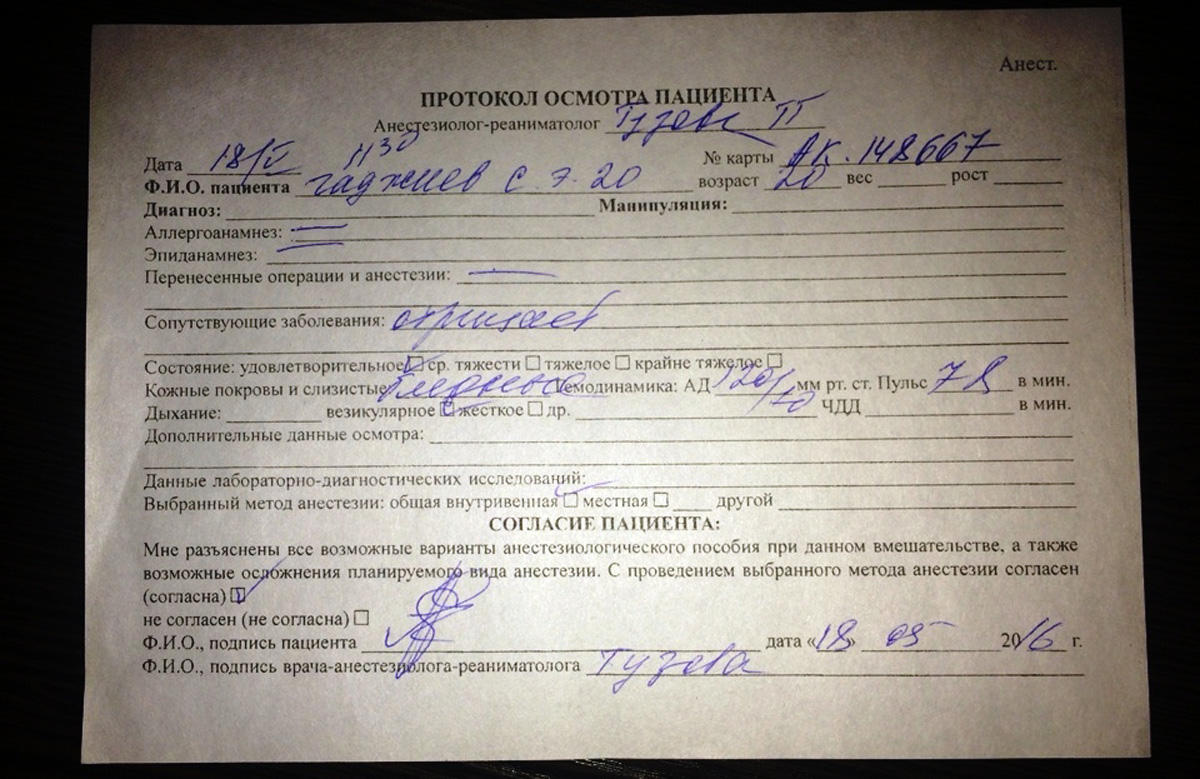 Анест.
ПРОТОКОЛ ОСМОТРА ПАЦИЕНТА
Анестезиолог-реаниматолог Тузова
Дата 18/V 11 30 № карты АК. 148667
Ф.И.О. пациента Гаджиев С. Э. 20 возраст 20 вес рост
Диагноз: Манипуляция:
Аллергоанамнез:
Эпиданамнез:
Перенесенные операции и анестезии: —
Сопутствующие заболевания: отрицает
Состояние: удовлетворительное ☑ ср. тяжести ☐ тяжелое ☐ крайне тяжелое ☐
Кожные покровы и слизистые Гемодинамика: АД 120/70 мм рт. ст. Пульс 78 в мин.
Дыхание: везикулярное ☑ жесткое ☐ др. ЧДД в мин.
Дополнительные данные осмотра:
Данные лабораторно-диагностических исследований:
Выбранный метод анестезии: общая внутривенная ☑ местная ☐ другой
СОГЛАСИЕ ПАЦИЕНТА:
Мне разъяснены все возможные варианты анестезиологического пособия при данном вмешательстве, а также
возможные осложнения планируемого вида анестезии. С проведением выбранного метода анестезии согласен
(согласна) ☑
не согласен (не согласна) ☐
Ф.И.О., подпись пациента дата «18» 05 2016 г.
Ф.И.О., подпись врача-анестезиолога-реаниматолога Тузова